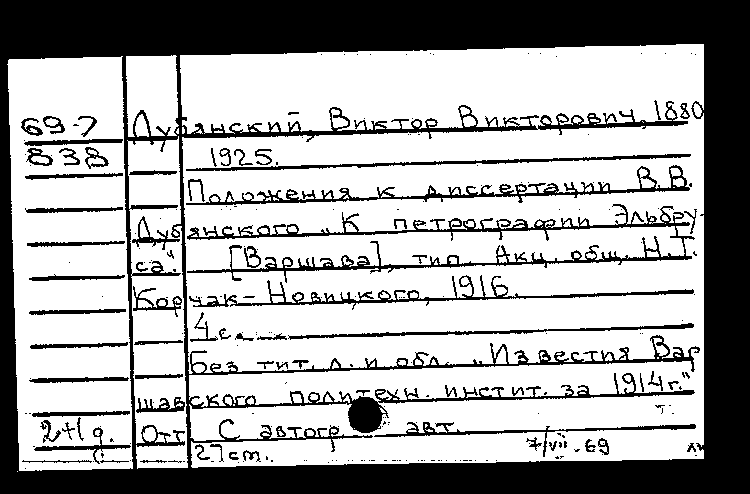 69-7 Дубянский, Виктор Викторович, 1880
838 1925.
Положения к диссертации В.В.
Дубянского „К петрографии Эльбру-
са." [Варшава], тип. Акц. общ. Н.Т.
Корчак-Новицкого, 1916.
4 с.
Без тит. л. и обл. „Известия Вар
шавского политехн. инстит. за 1914 г."
2+1д. Отт С автогр. авт.
27 cm. 7/vii-69